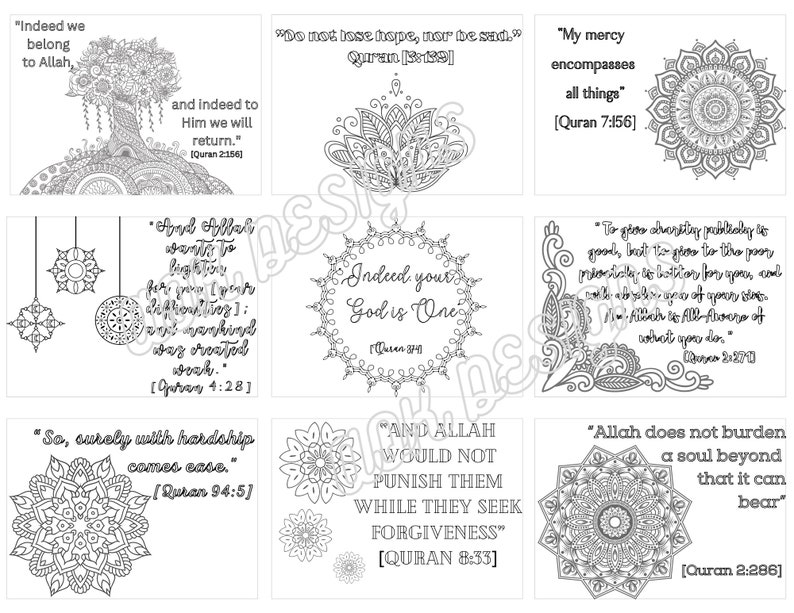 "Indeed we
belong
to Allah,
and indeed to
Him we will
return."
[Quran 2:156]
"Do not lose hope, nor be sad."
Quran [3:139]
"My mercy
encompasses
all things"
[Quran 7:156]
"And Allah
wants to
lighten
for you [your
difficulties];
and mankind
was created
weak."
[Quran 4:28]
Indeed, your
God is One
[Quran 37:4]
"To give charity publicly is
good, but to give to the poor
privately is better for you, and
will absolve you of your sins.
And Allah is All-Aware of
what you do."
[Quran 2:271]
"So, surely with hardship
comes ease."
[Quran 94:5]
"AND ALLAH
WOULD NOT
PUNISH THEM
WHILE THEY SEEK
FORGIVENESS"
[QURAN 8:33]
"Allah does not burden
a soul beyond
that it can
bear"
[Quran 2:286]
DESIGNS
DESIGNS